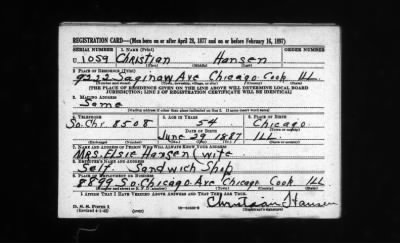 REGISTRATION CARD—(Men born on or after April 28, 1877 and on or before February 16, 1897)
SERIAL NUMBER 1. NAME (Print) ORDER NUMBER
U 1059 Christian Hansen
(First) (Middle) (Last)
2. PLACE OF RESIDENCE (Print)
Saginaw Ave Chicago Cook ILL
[THE PLACE OF RESIDENCE GIVEN ON THE LINE ABOVE WILL DETERMINE LOCAL BOARD
JURISDICTION; LINE 2 OF REGISTRATION CERTIFICATE WILL BE IDENTICAL]
3. MAILING ADDRESS
Same
[Mailing address if other than place indicated on line 2. If same insert word same]
4. TELEPHONE 5. AGE IN YEARS 6. PLACE OF BIRTH
So. Chi. 8508 54 Chicago
DATE OF BIRTH (Town or county)
June 29 1887 ILL.
7. NAME AND ADDRESS OF PERSON WHO WILL ALWAYS KNOW YOUR ADDRESS
Mrs. Elsie Hansen wife
8. EMPLOYER'S NAME AND ADDRESS
Self Sandwich Shop
9. PLACE OF EMPLOYMENT OR BUSINESS
8899 So. Chicago Ave Chicago Cook ILL
I AFFIRM THAT I HAVE VERIFIED ABOVE ANSWERS AND THAT THEY ARE TRUE.
D. S. S. Form 1
(Revised 4-1-42)
Christian Hansen
(Registrant's signature)